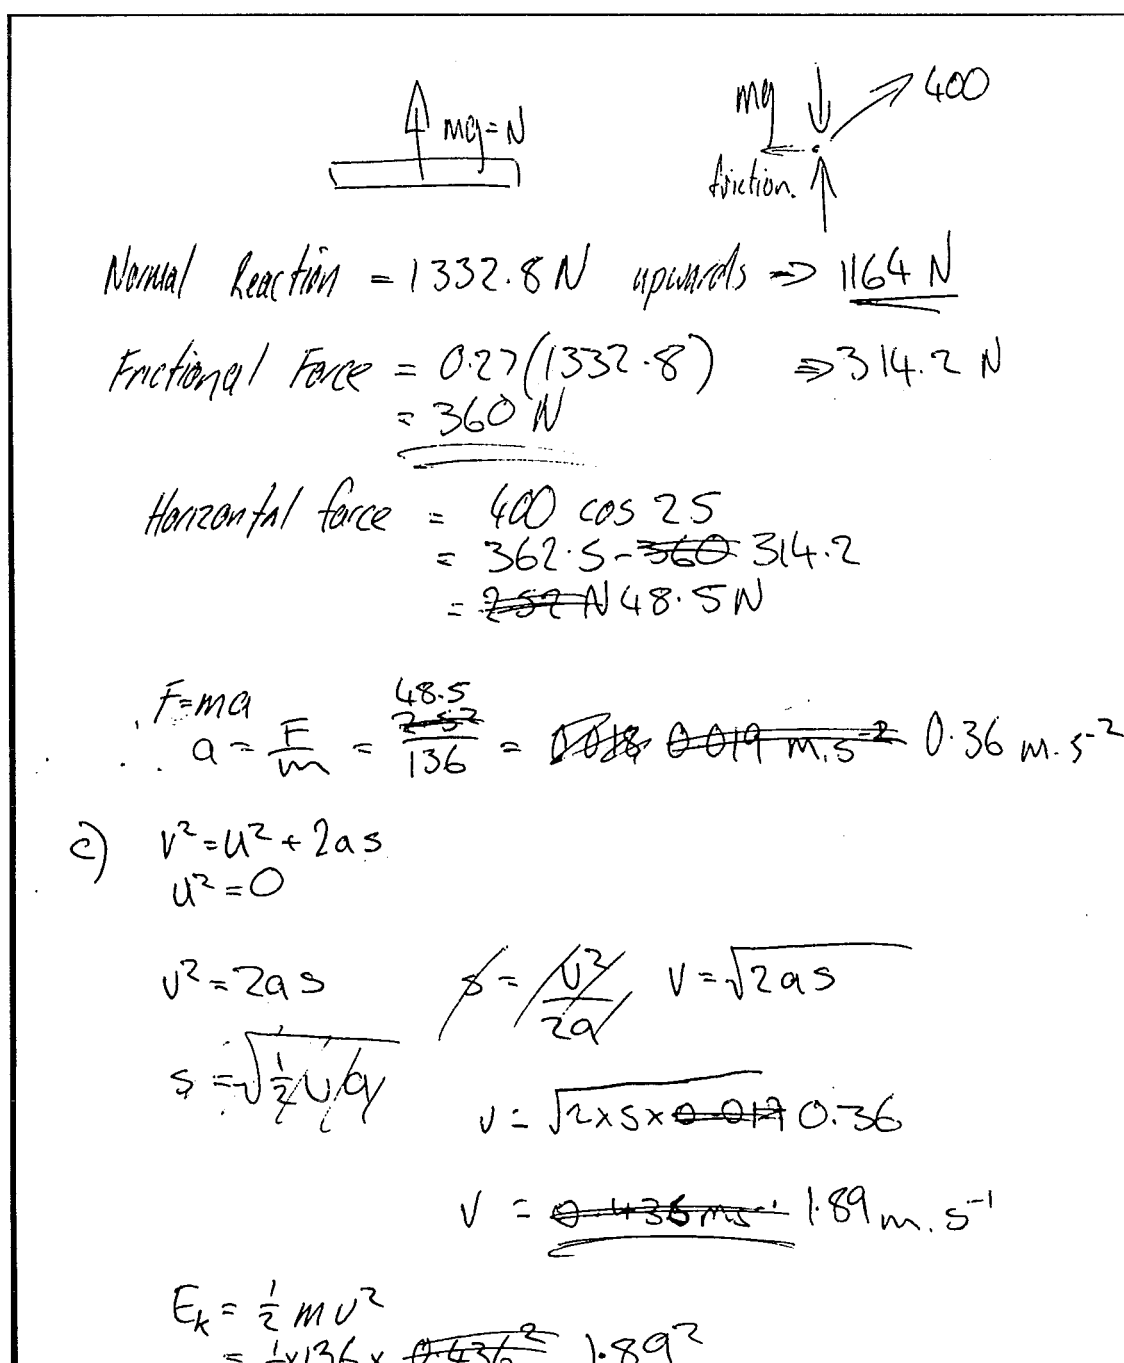 mg = N
mg 400
friction.
Normal Reaction = 1332.8 N upwards ⇒ 1164 N
Frictional Force = 0.27(1332.8) ⇒ 314.2 N
= 360 N
Horizontal force = 400 cos 25
= 362.5 - 360 314.2
= 2.52 N 48.5 N
F=ma
48.5
∴ a = F/m = 2.52/136 = 0.018 0.019 m.s⁻² 0.36 m.s⁻²
c) v² = u² + 2as
u² = 0
v² = 2as s = v²/2a v = √2as
s = √½v/a
v = √2×5×0.019 0.36
v = 0.436 ms⁻¹ 1.89 m.s⁻¹
Eₖ = ½ mv²
= ½×136× 0.436² 1.89²